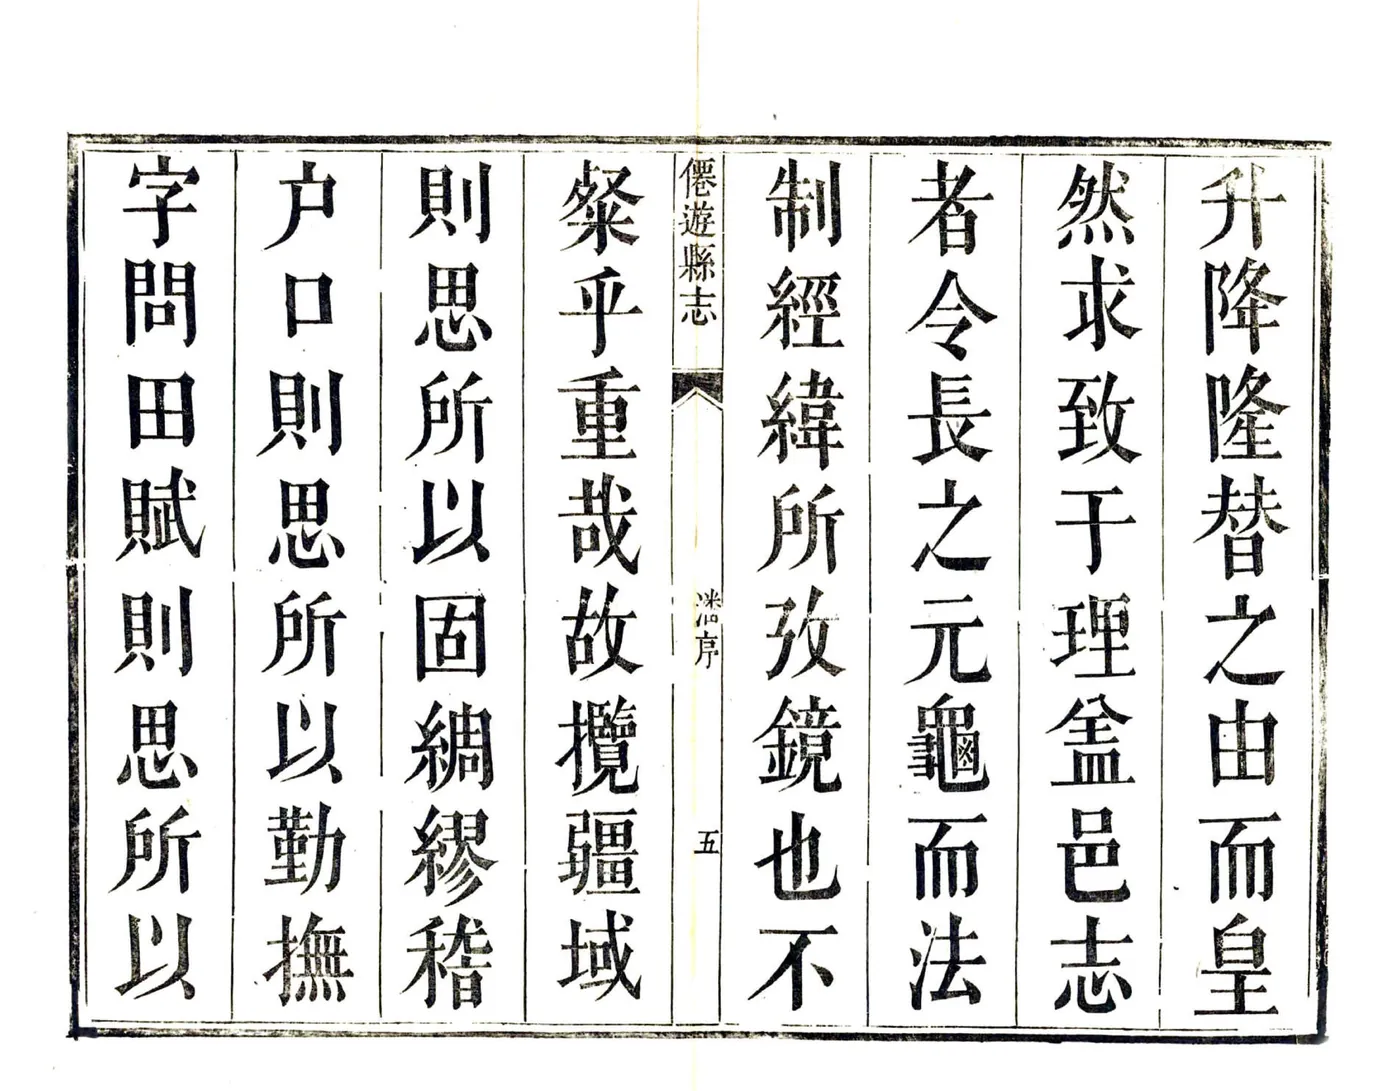 升降隆替之由而皇
然求致于理盖邑志
者令長之元龜而法
制經緯所攷鏡也不
僊遊縣志
序
五
粲乎重哉故攬疆域
則思所以固綢繆稽
户口則思所以勤撫
字問田賦則思所以